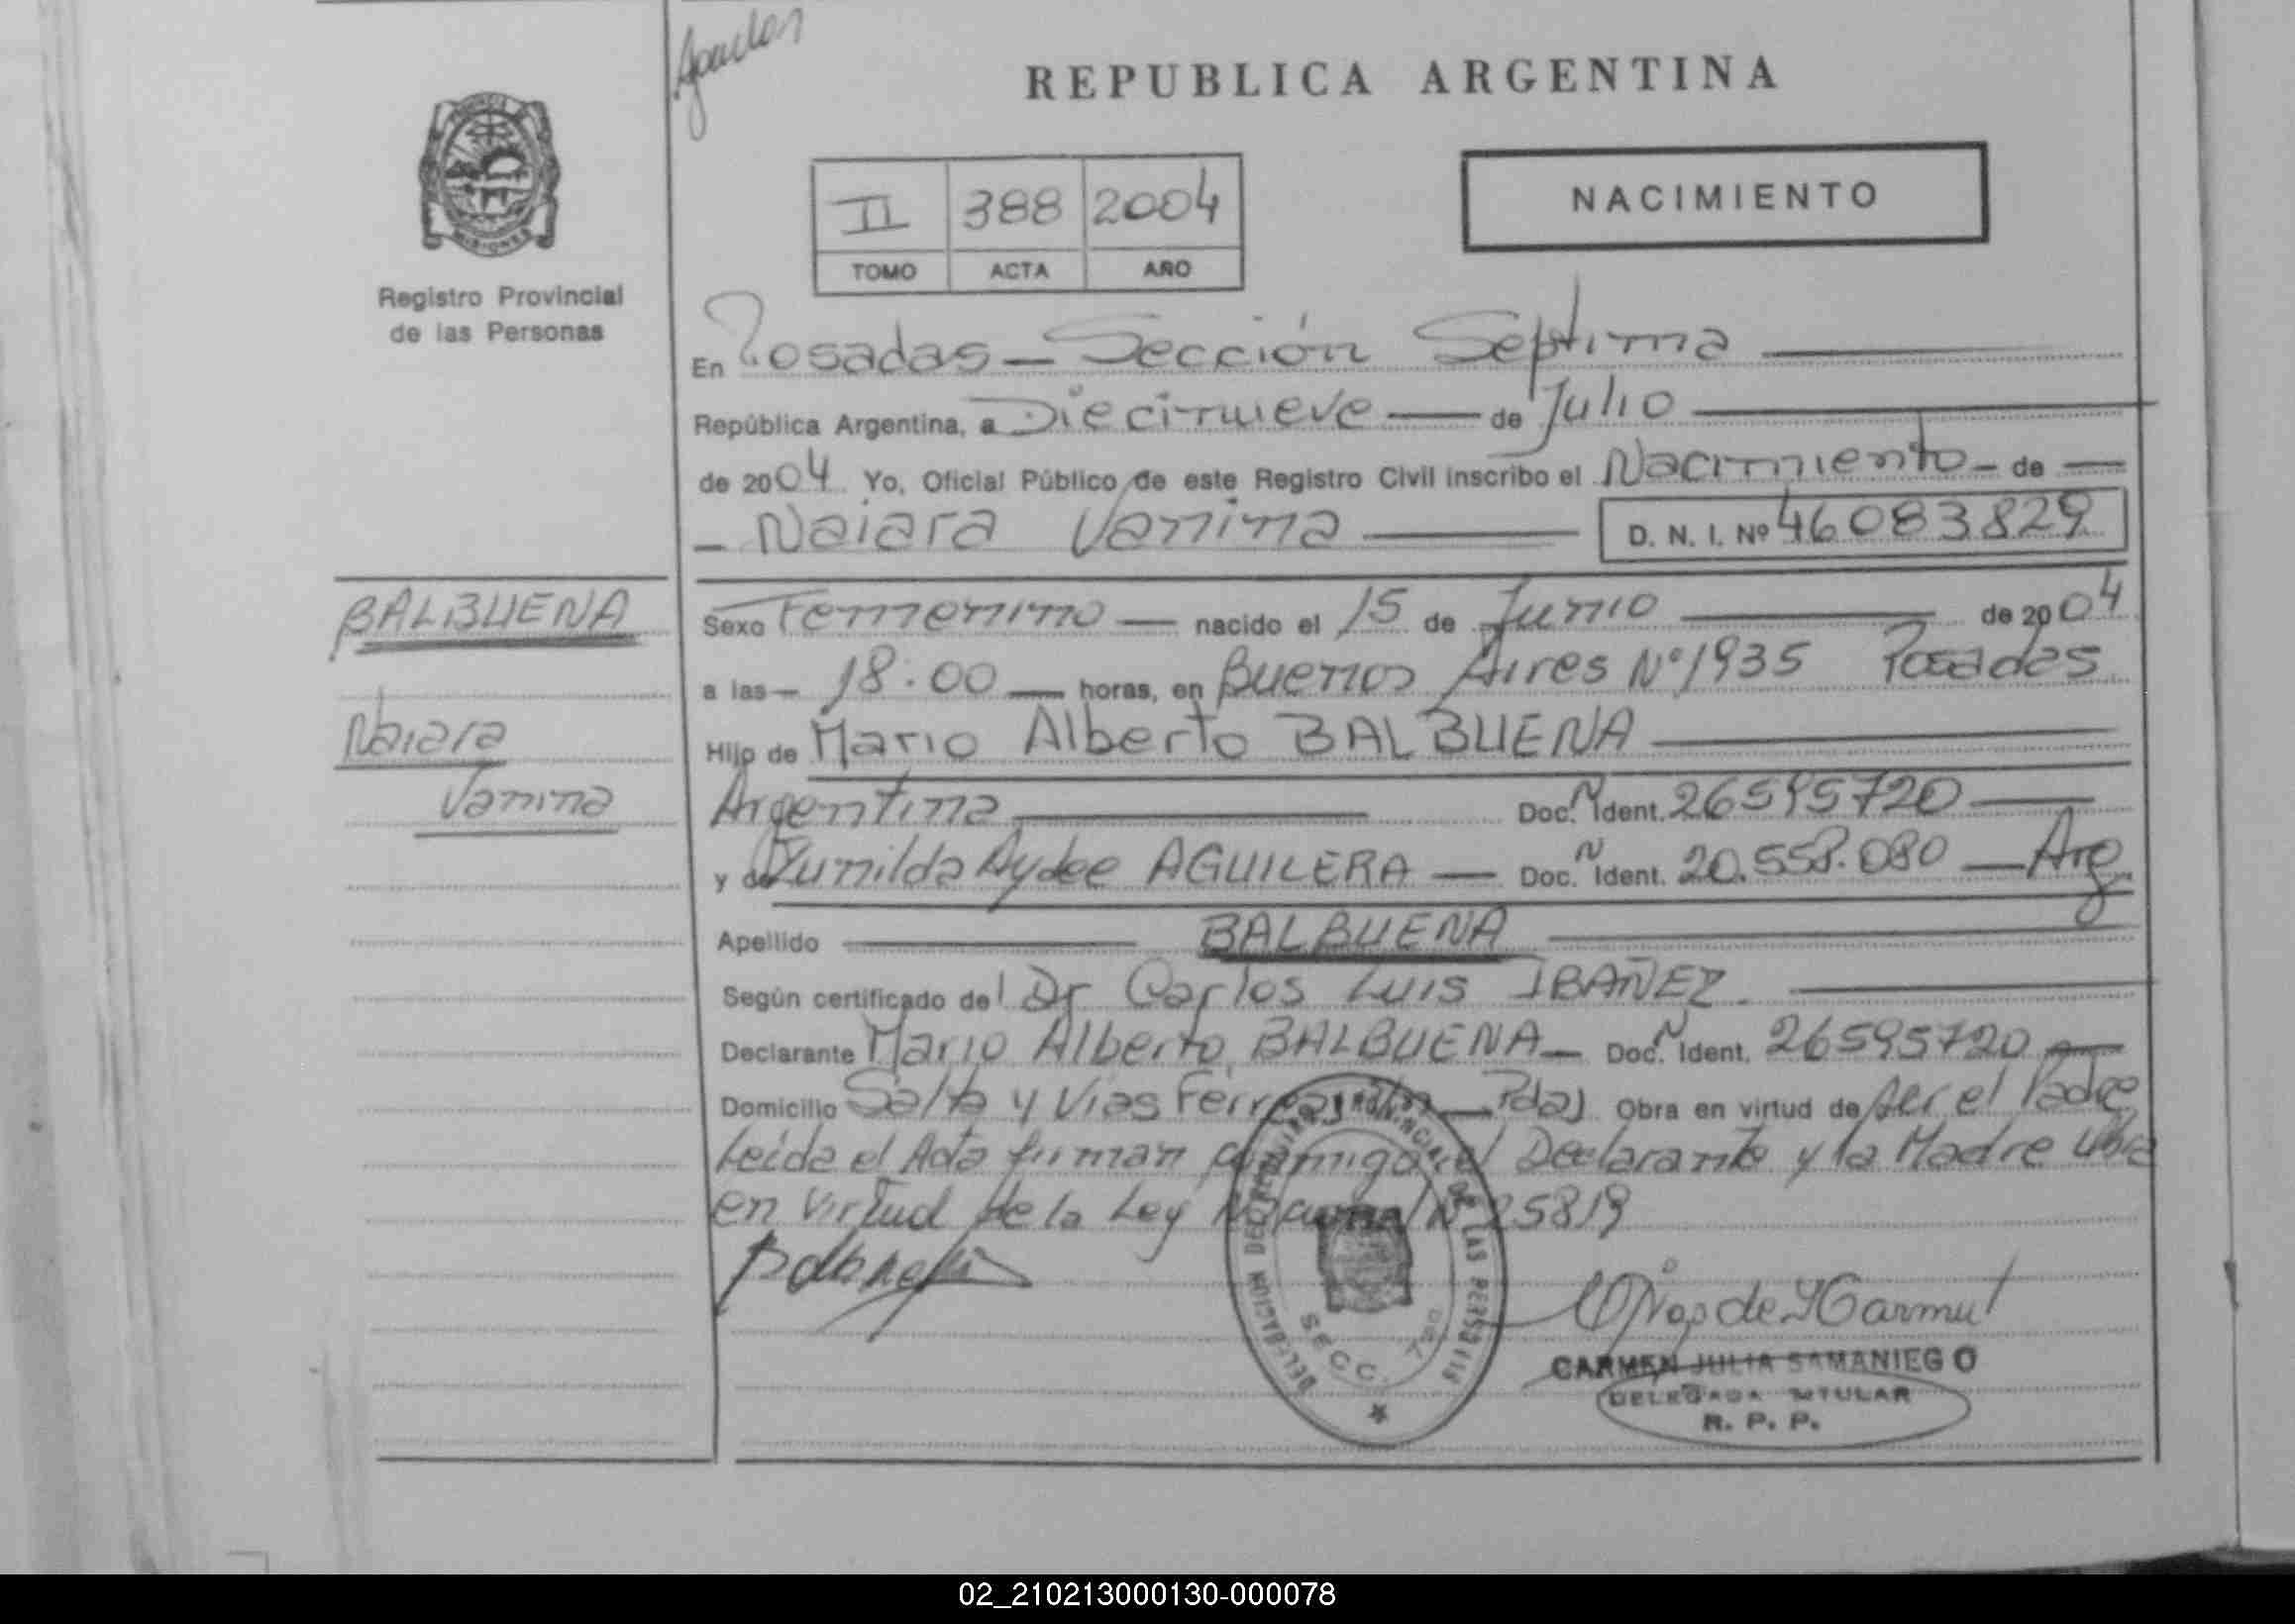 REPUBLICA ARGENTINA
MISIONES
Registro Provincial
de las Personas
II 388 2004
TOMO ACTA AÑO
NACIMIENTO
En Posadas — Sección Septima
República Argentina, a Diecinueve — de Julio
de 2004 Yo, Oficial Público de este Registro Civil inscribo el Nacimiento - de —
- Naiara Vanina — D. N. I. Nº 46083829
BALBUENA
Naiara
Vanina
Sexo Femenino — nacido el 15 de Junio — de 2004
a las - 18:00 — horas, en Buenos Aires Nº 1935 Posadas
Hijo de Mario Alberto BALBUENA
Argentina — Doc. N Ident. 26595720 —
y de Zunilda Aydee AGUILERA — Doc. N Ident. 20.558.080 — Arg
Apellido — BALBUENA —
Según certificado del Dr Carlos Luis IBAÑEZ
Declarante Mario Alberto BALBUENA — Doc. N Ident. 26595720 —
Domicilio Salta y Vias Ferreas — Pdas Obra en virtud de ser el Padre
Leida el Acta firman conmigo el Declarante y la Madre obra
en virtud de la Ley Nacional Nº 25819
DELEGACION DEL REGISTRO PROVINCIAL DE LAS PERSONAS
SECC. 7ma
CARMEN JULIA SAMANIEGO
DELEGADA TITULAR
R. P. P.
02_210213000130-000078